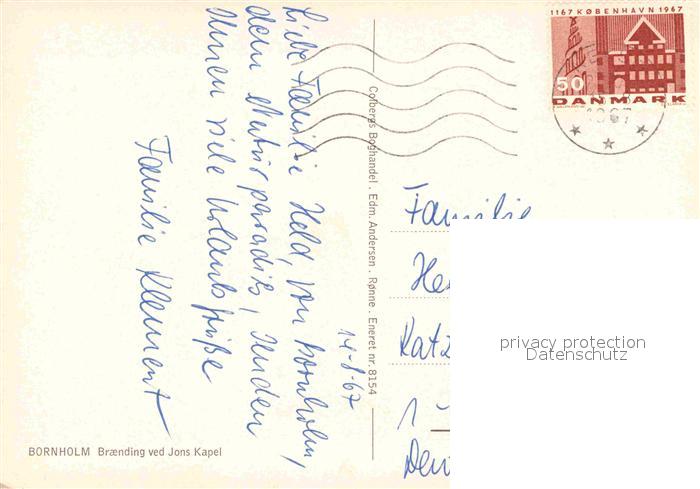 1167 KØBENHAVN 1967
50
DANMARK
1967
14-8-67
Liebe Familie Held, von Bornholm,
dem Naturparadies, senden
Ihnen viele Urlaubsgrüße
Familie Klement
Colbergs Boghandel . Edm. Andersen . Rønne . Eneret nr. 8154
Familie
He
Katz
1 -
privacy protection
Datenschutz
BORNHOLM Brænding ved Jons Kapel